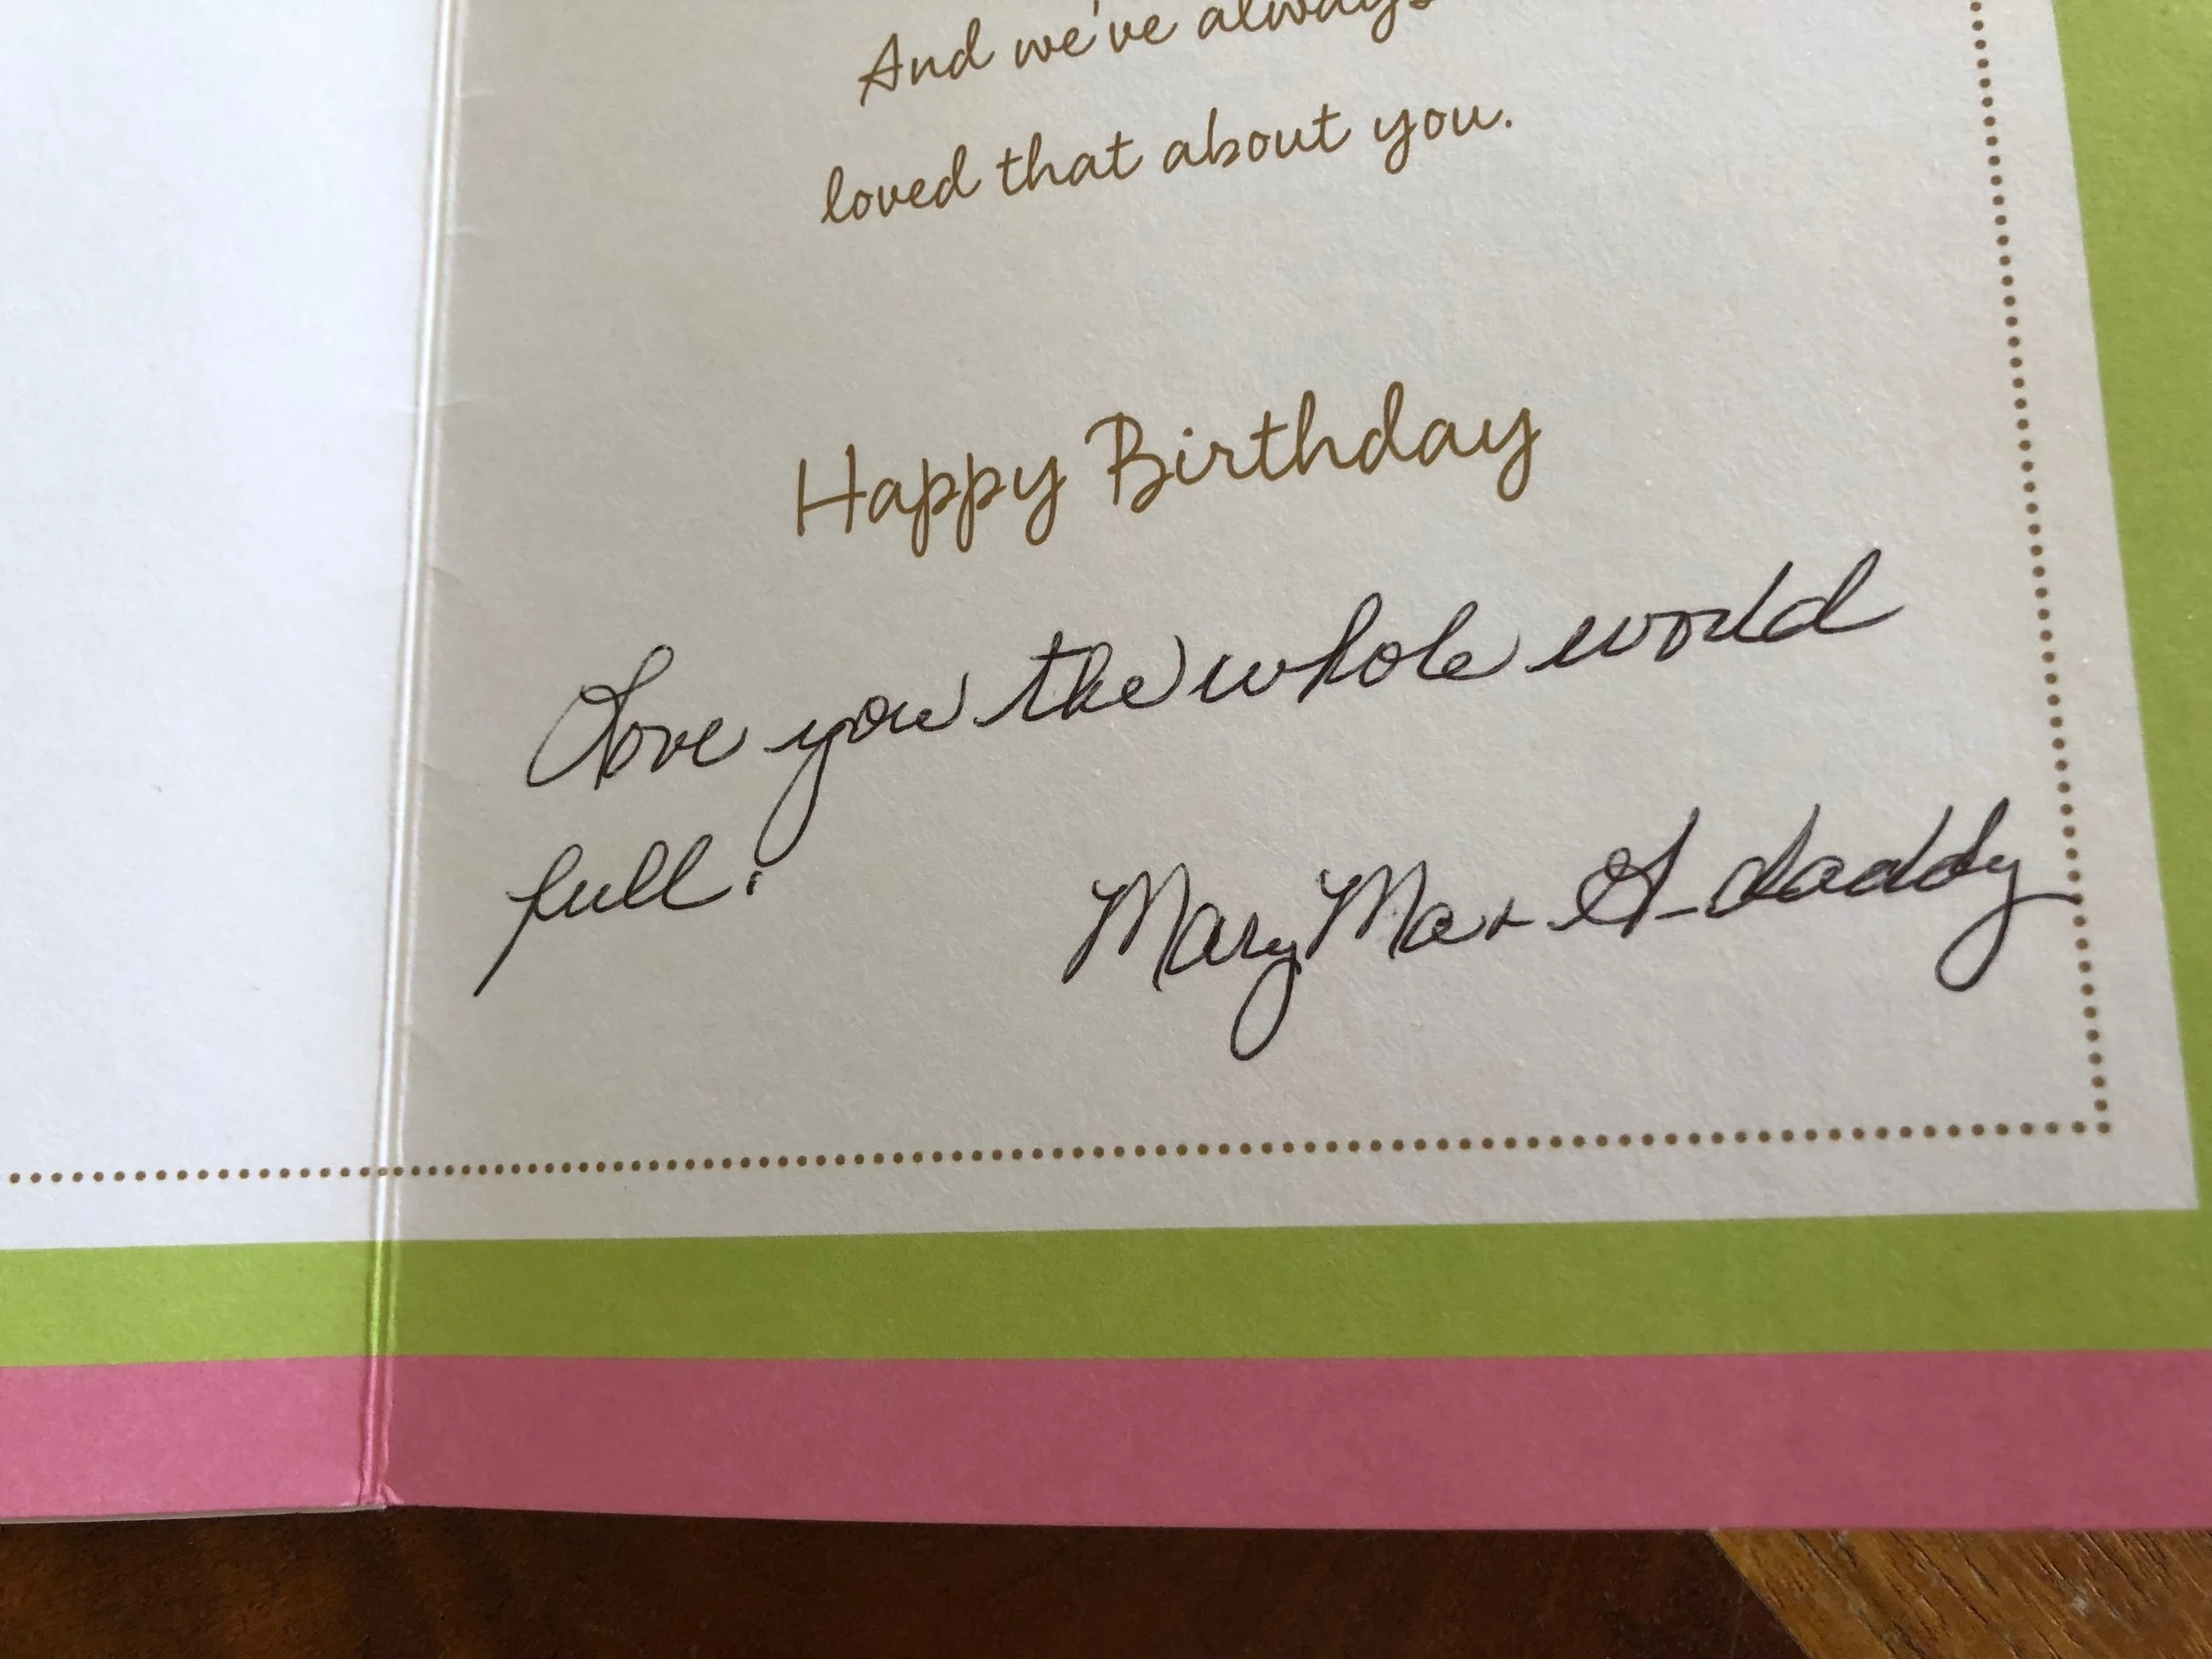 And we've always
loved that about you.
Happy Birthday
Love you the whole world
full!
MaryMa + G-daddy